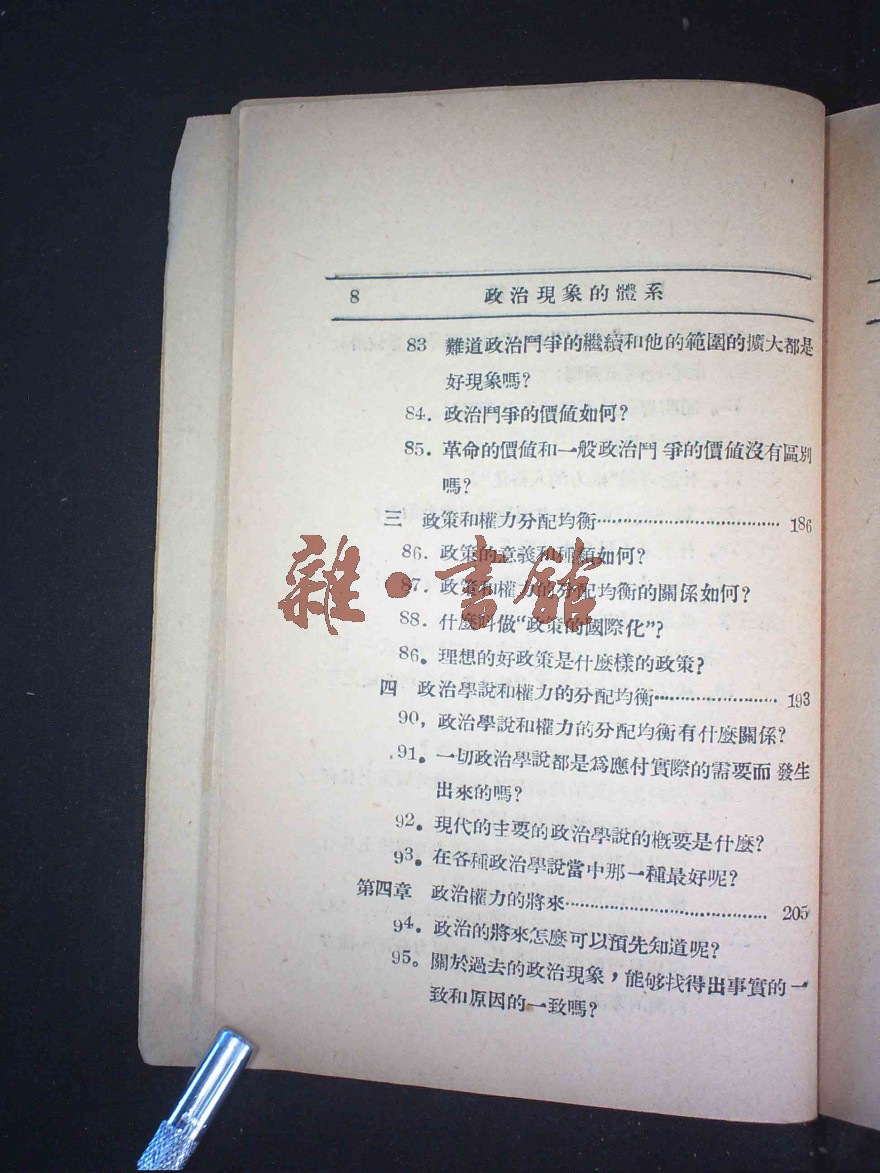 8 政治現象的體系
83 難道政治鬥爭的繼續和他的範圍的擴大都是
好現象嗎?
84. 政治鬥爭的價値如何?
85. 革命的價値和一般政治鬥爭的價値沒有區別
嗎?
三 政策和權力分配均衡…………………………… 186
86. 政策的意義和種類如何?
87. 政策和權力的分配均衡的關係如何?
88. 什麼叫做“政策的國際化”?
86。理想的好政策是什麼樣的政策?
四 政治學說和權力的分配均衡………………… 193
90, 政治學說和權力的分配均衡有什麼關係?
91。一切政治學說都是爲應付實際的需要而發生
出來的嗎?
92。現代的主要的政治學說的槪要是什麼?
93。在各種政治學說當中那一種最好呢?
第四章 政治權力的將來……………………………… 205
94。政治的將來怎麼可以預先知道呢?
95。關於過去的政治現象，能够找得出事實的一
致和原因的一致嗎?
雜·書館